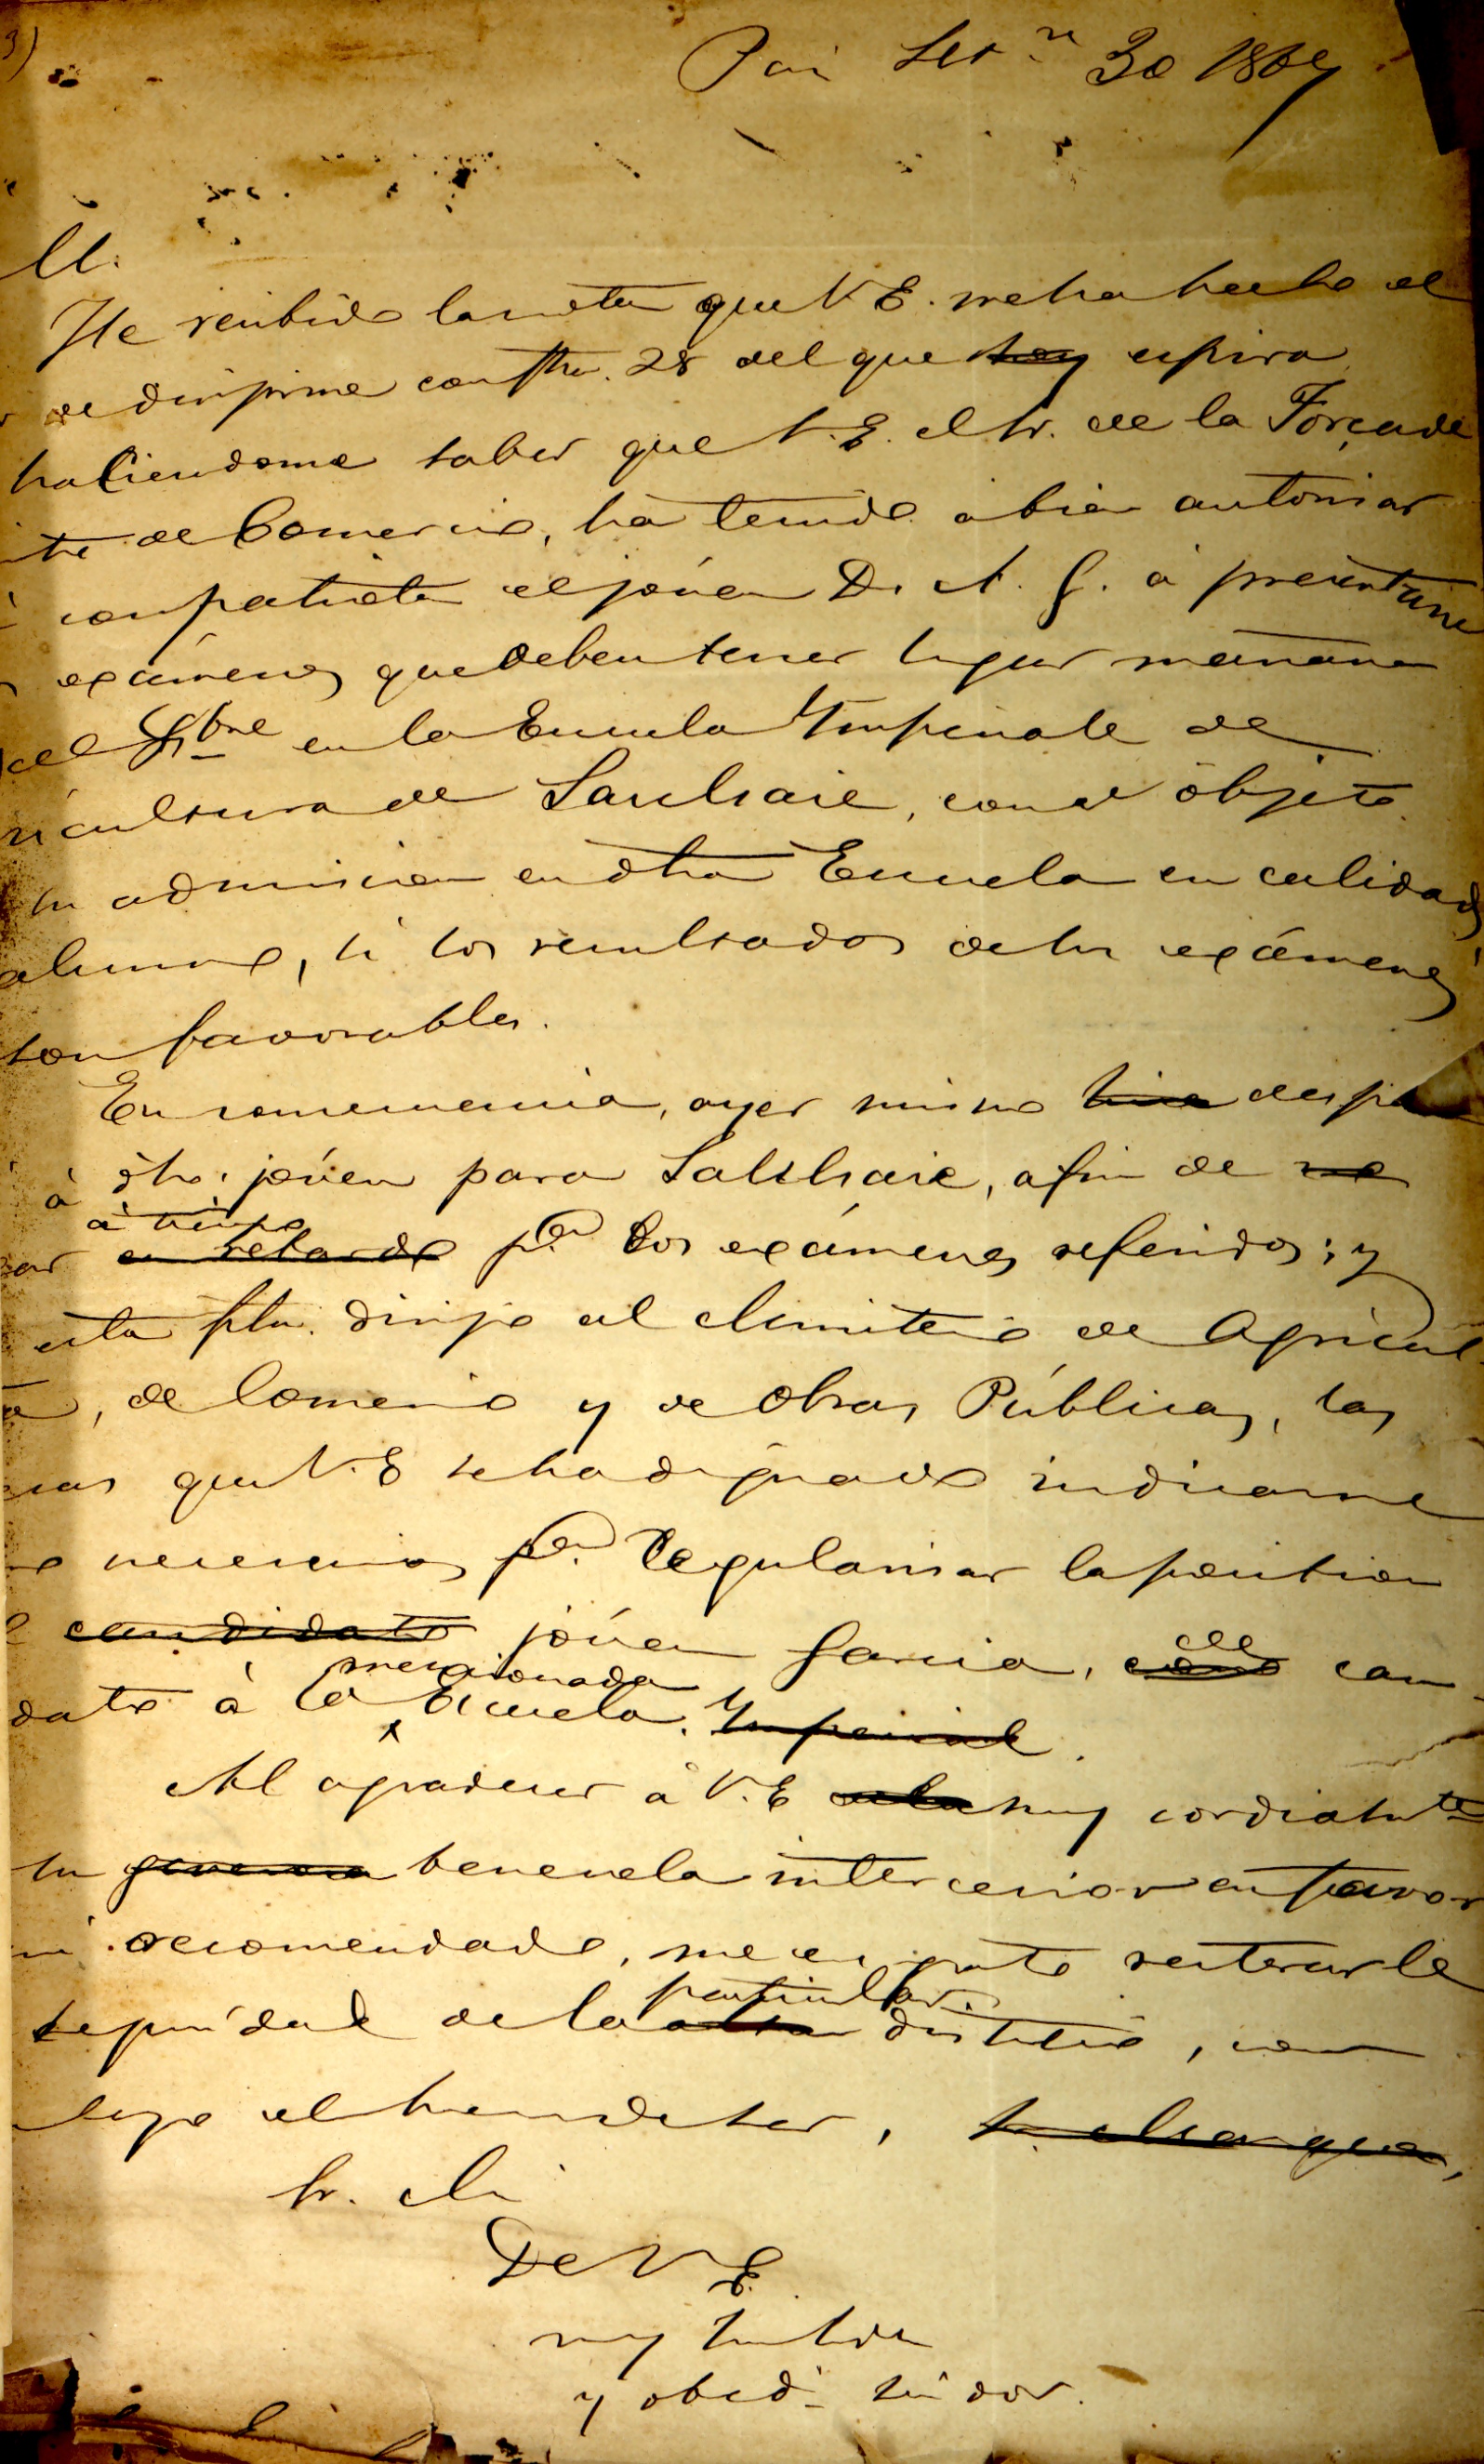 3)
Paris Set.re 30 1867
M.
He recibido la nota que V. E. me ha hecho el
de dirijirme con fha. 28 del que hoy espira
haciendome saber que S. E. el Sr. de la Forcade
de Comercio, ha tenido á bien autorisar
compatriota el jóven D. A. G. á presentarse
exámenes que deben tener lugar mañana
del 8bre en la Escuela Imperiale de
ricultura de Saulsaie, con el objeto
su admision en dha Escuela en calidad
alumno, si los resultados de sus exámenes
son favorables.
En consecuencia, ayer mismo hice despa
á dho. jóven para Salshaie, a fin de no
á tiempo
ar en retardo pa. los exámenes referidos; y
esta fha. dirijo al Ministerio de Agricul
, de Comercio y de Obras Públicas, las
que V. E se ha dignado indicarme
necesarias pa. regularisar la posicion
candidato jóven Garcia, como can-
mencionada
dato á la Escuela. Imperial.
Al agradecer á V. E muy cordialmte
su generosa benevola intercesion en favor
mi recomendado, me es grato reiterarle
particular
seguridad de la alta distincion, con
tengo el honor de ser,
Sr. Mi
De V E.
muy
y obed. servidor.